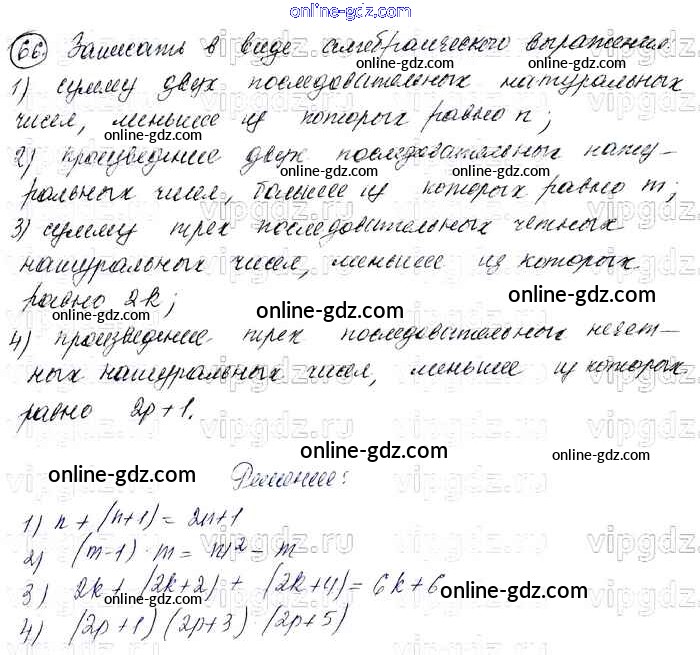 online-gdz.com
66. Записать в виде алгебраического выражения:
1) сумму двух последовательных натуральных
чисел, меньшее из которых равно n;
online-gdz.com online-gdz.com
2) произведение двух последовательных нату-
ральных чисел, большее из которых равно m;
online-gdz.com online-gdz.com
3) сумму трех последовательных четных
натуральных чисел, меньшее из которых
равно 2k;
online-gdz.com online-gdz.com
4) произведение трех последовательных нечет-
ных натуральных чисел, меньшее из которых
online-gdz.com online-gdz.com
равно 2p+1.
online-gdz.com online-gdz.com
Решение:
1) n + (n+1) = 2n+1
online-gdz.com online-gdz.com
2) (m-1) · m = m² - m
3) 2k + (2k+2) + (2k+4) = 6k+6
online-gdz.com online-gdz.com
4) (2p+1) (2p+3) · (2p+5)